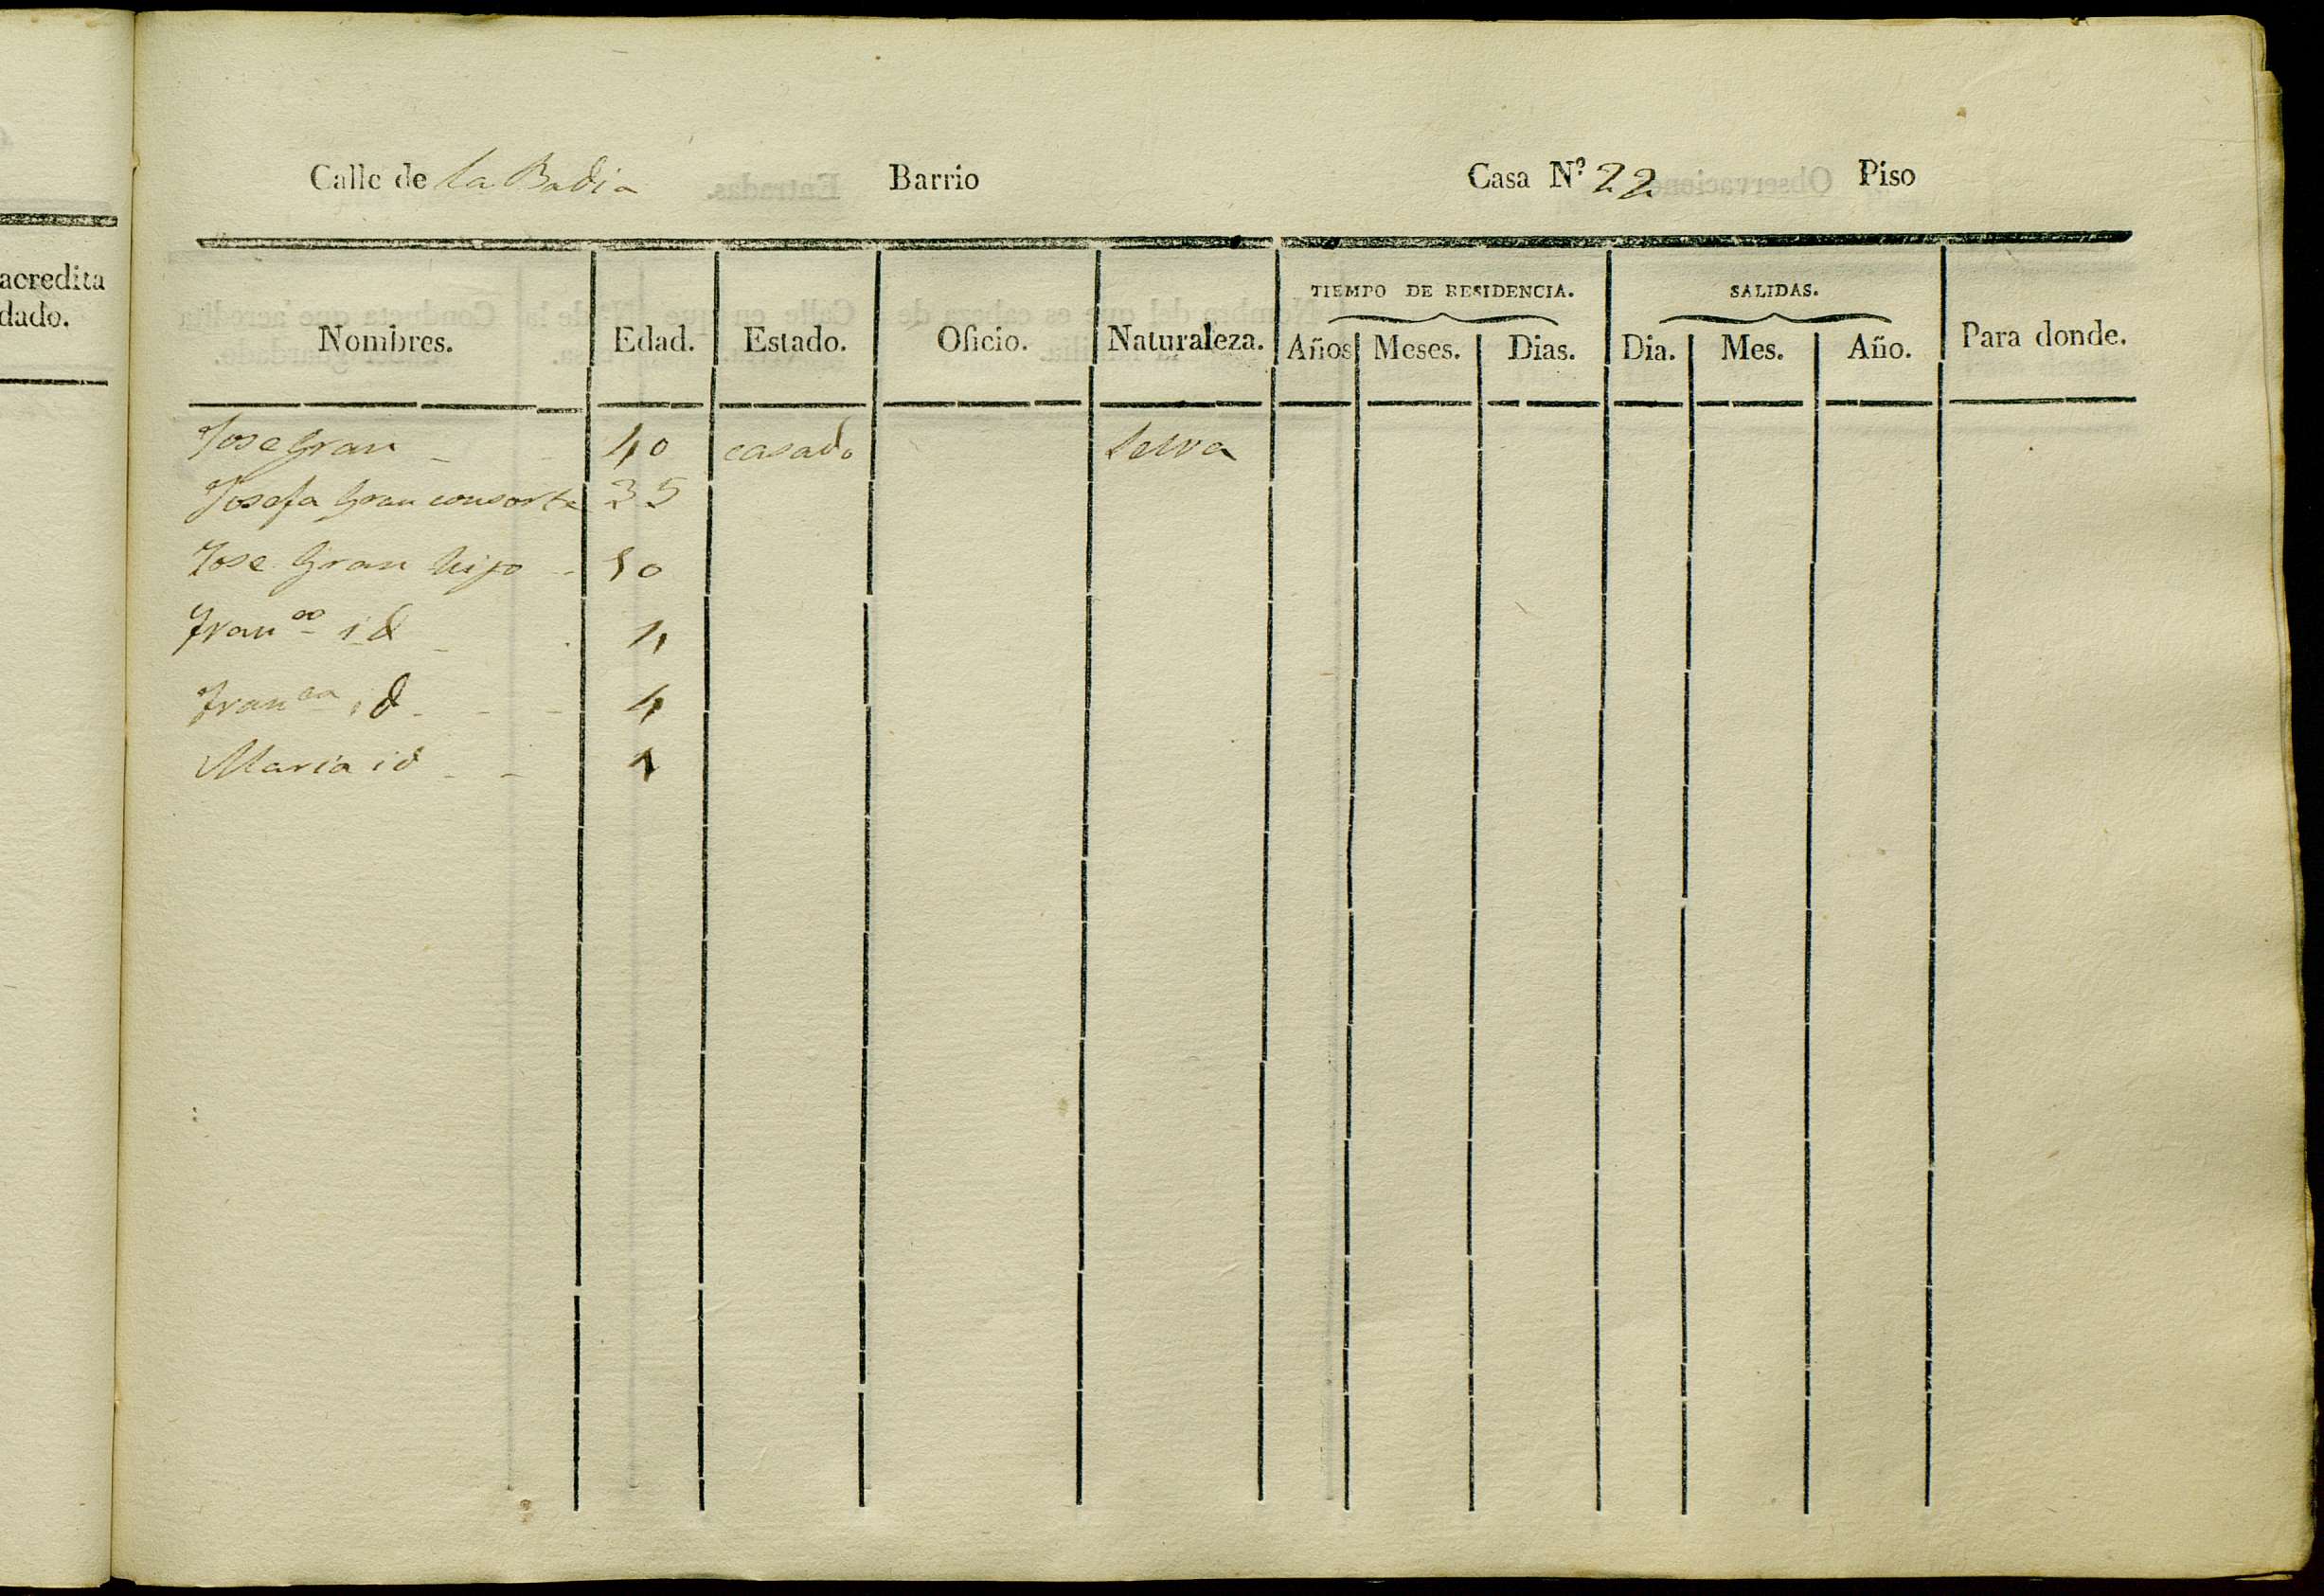 acredita
dado.
Calle de la Badia Barrio Casa Nº 22 Piso
TIEMPO DE RESIDENCIA. SALIDAS.
Nombres. Edad. Estado. Oficio. Naturaleza. Años Meses. Dias. Dia. Mes. Año. Para donde.
Jose Grau 40 casado Selva
Josefa Grau consorte 35
Jose Grau hijo 10
Franco id
Franca id 4
Maria id 1